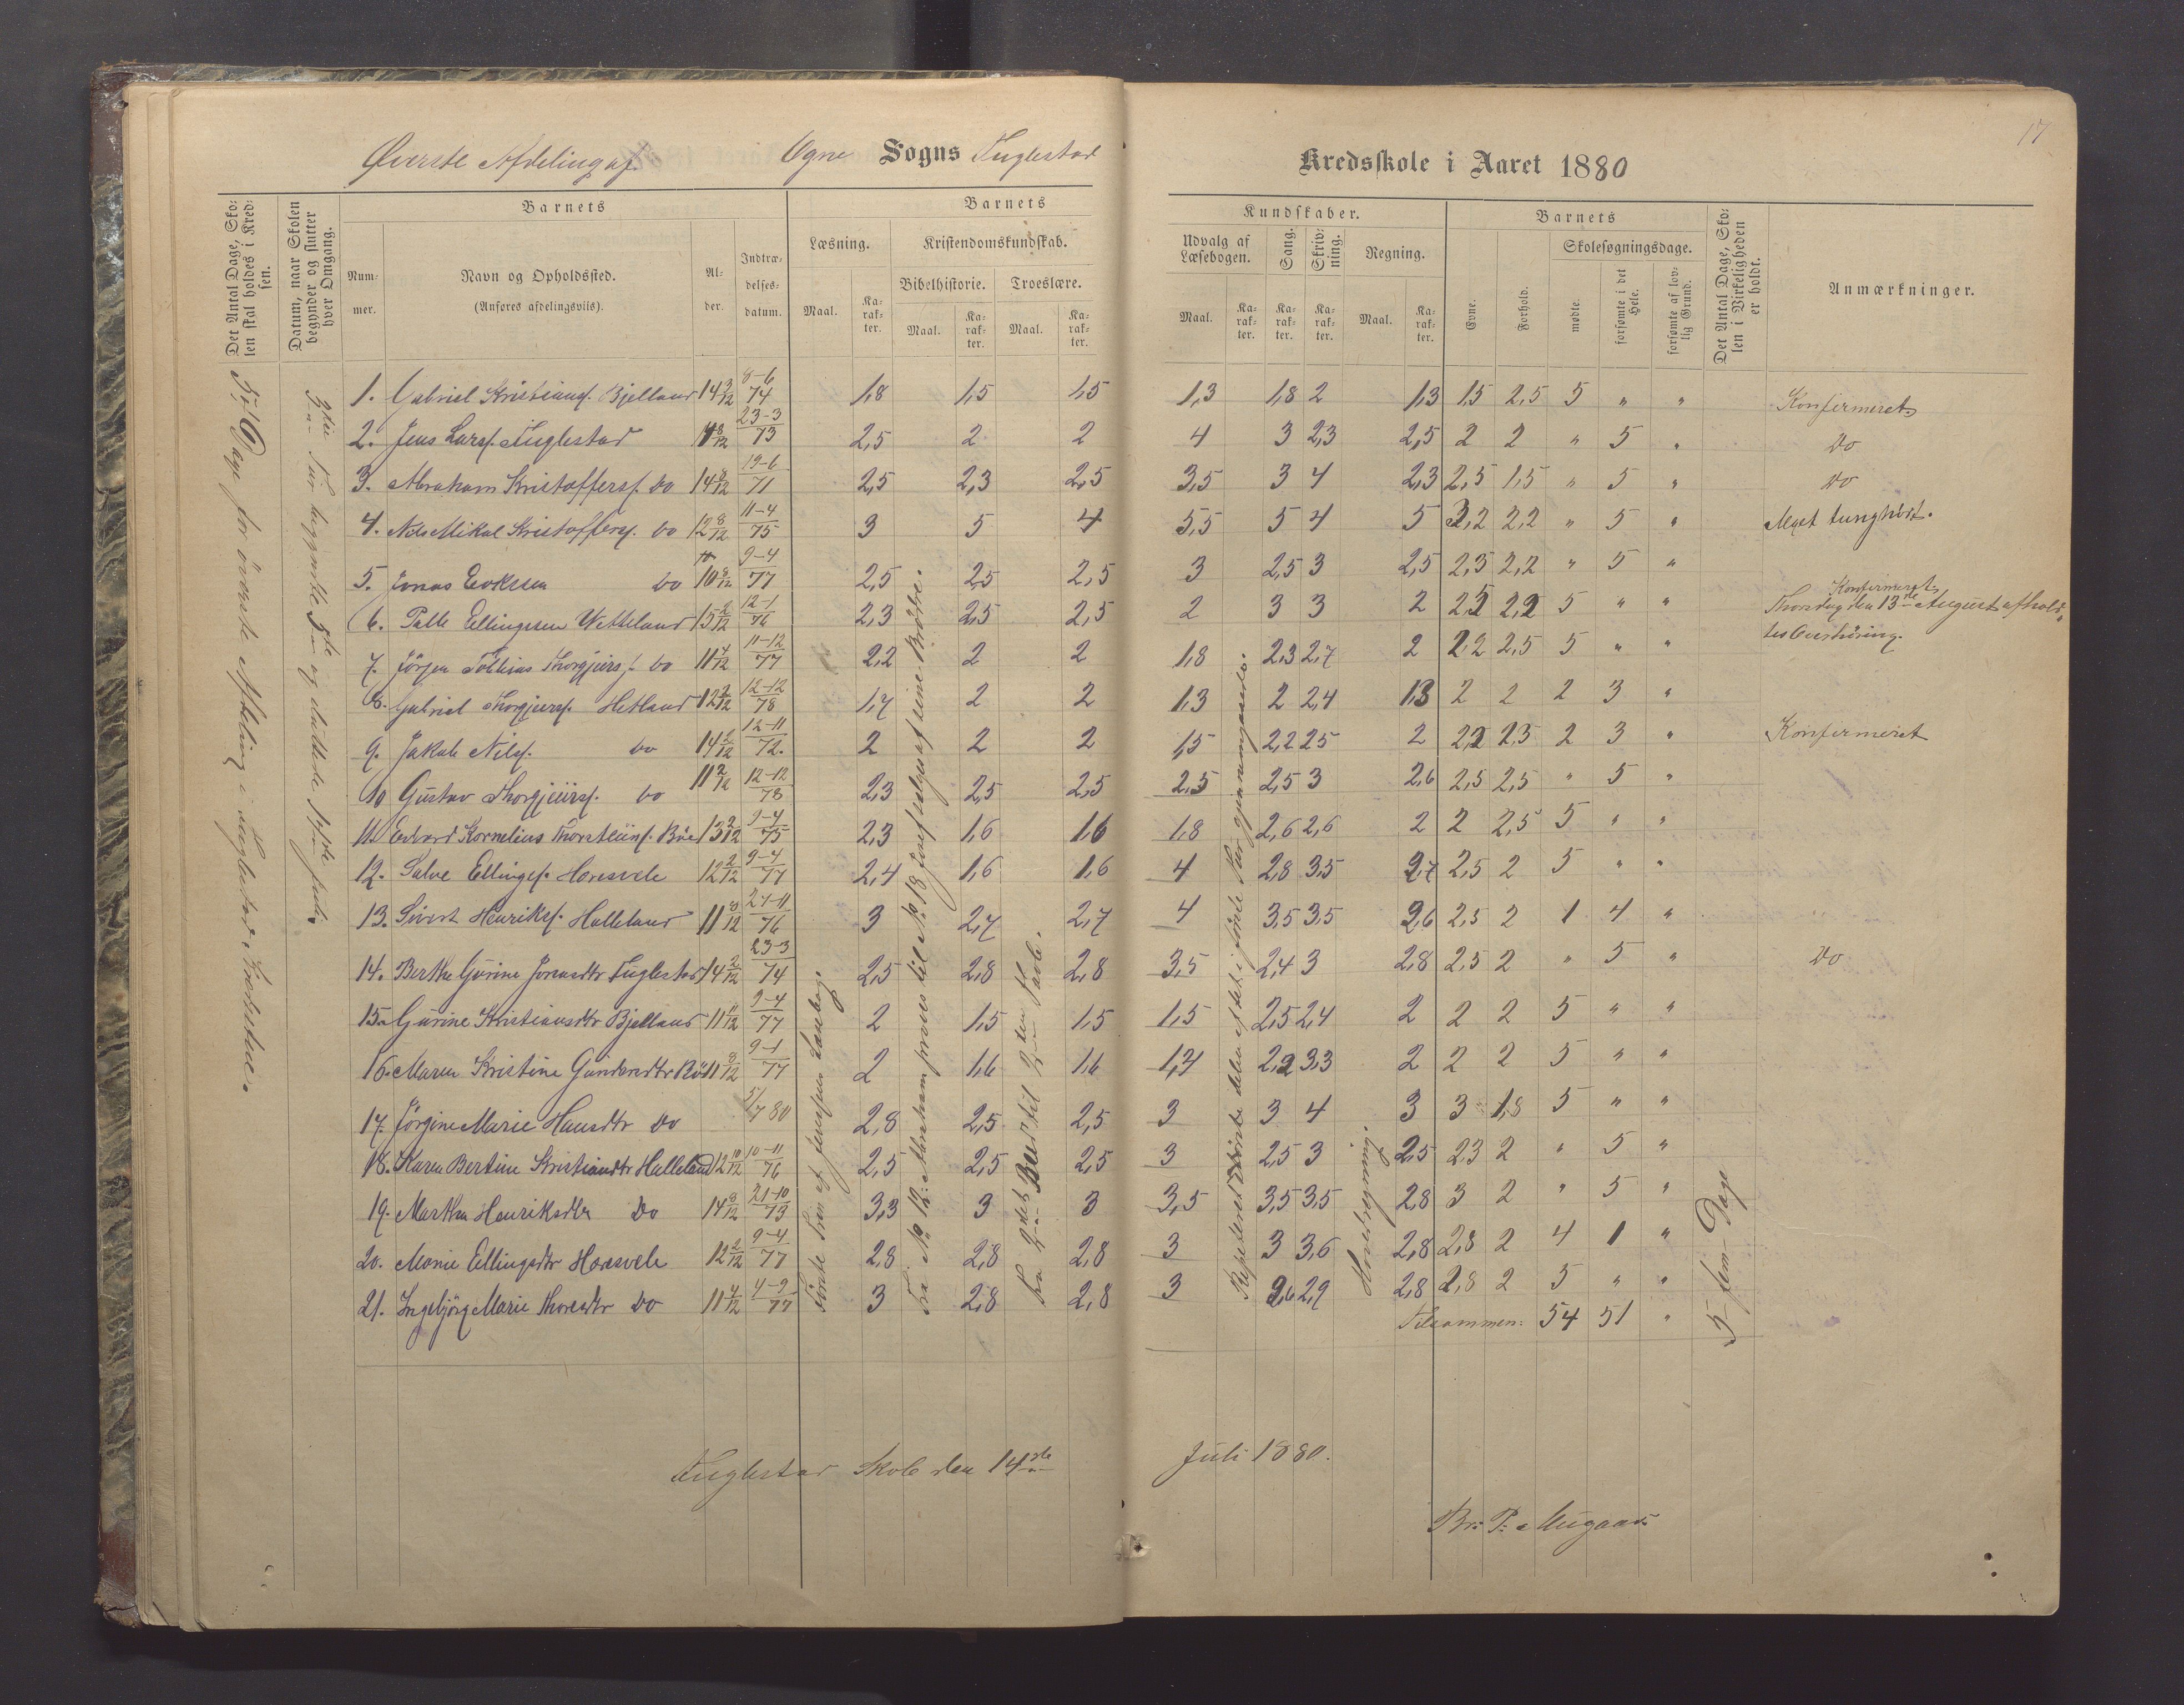 17
Øverste Afdeling af Ogne Sogns Fuglestad Kredsskole i Aaret 1880
Det Antal Dage, Skolen skal holdes i Kredsen.
Datum, naar Skolen begynder og slutter hver Omgang.
Barnets
Nummer.
Navn og Opholdssted.
(Anføres afdelingsviis).
Alder.
Indtrædelsesdatum.
Barnets Kundskaber.
Læsning.
Maal. Karakter.
Kristendomskundskab.
Bibelhistorie. Troeslære.
Maal. Karakter. Maal. Karakter.
Udvalg af Læsebogen.
Maal. Karakter.
Sang. Karakter.
Skrivning. Karakter.
Regning.
Maal. Karakter.
Barnets
Evne. Forhold.
Skolesøgningsdage.
mødte. forsømte i det Hele. forsømte af lovlig Grund.
Det Antal Dage, Skolen i Virkeligheden er holdt.
Anmærkninger.
Dage for øverste Afdeling i Fuglestad Kreds
3die Tur begyndte 5te og sluttede 14de Juli.
1. Gabriel Kristians. Bjelland 14 3/12 8-6 74 1,8 1,5 1,5 1,3 1,8 2 1,3 1,5 2,5 5 " " Konfirmeret
2. Jens Lars. Fuglestad 14 8/12 23-3 73 2,5 2 2 4 3 2,3 2,5 2 2 " 5 " Do
3. Abraham Kristoffers. Do 14 8/12 19-6 71 2,5 2,3 2,5 3,5 3 4 2,3 2,5 1,5 " 5 " Do
4. Nils Mikal Kristoffers. Do 12 8/12 11-4 75 3 5 4 5,5 5 4 5 3,2 2,2 " 5 " Meget tunghørt.
5. Jonas Do 10 8/12 9-4 77 2,5 2,5 2,5 3 2,5 3 2,5 2,3 2,2 " 5 "
6. Palle Ellingsen Wetteland 15 2/12 12-1 76 2,3 2,5 2,5 2 3 3 2 2,2 2,2 5 " " Konfirmeret.
Thorsdag den 13de August afholdtes Overhøring.
7. Jørgen Tollias Thorgjers. Do 11 4/12 11-12 77 2,2 2 2 1,8 2,3 2,7 2 2,2 2,5 5 " "
8. Gabriel Thorgjers. Hetland 12 2/12 12-12 78 1,7 2 2 1,3 2 2,4 1,3 2 2 2 3 "
9. Jakob Nils. Do 14 2/12 12-11 72. 2 2 2 1,5 2,2 2,5 2 2,2 2,3 2 3 " Konfirmeret
10 Gustav Thorgjers. Do 11 2/12 12-12 78 2,3 2,5 2,5 2,5 2,5 3 2,6 2,5 2,5 " 5 "
11. Edvard Kornelius Thorsteins. Bøe 13 2/12 9-4 75 2,3 1,6 1,6 1,8 2,6 2,6 2 2 2,5 5 " "
12. Salve Ellings. Haresvele 12 2/12 9-4 77 2,4 1,6 1,6 4 2,8 3,5 2,7 2,5 2 5 " "
13. Sivert Henriks. Halleland 11 8/12 21-11 76 3 2,7 2,7 4 3,5 3,5 2,6 2,5 2 1 4 "
14. Berthe Gurine Jonasdtr Fuglestad 14 2/12 23-3 74 2,5 2,8 2,8 3,5 2,4 3 2,8 2,5 2 " 5 " Do
15. Gurine Kristiansdtr Bjelland 11 11/12 9-4 77 2 1,5 1,5 1,5 2,5 2,4 2 2 2 5 " "
16. Maren Kristine Gundersdtr Bøe 11 8/12 9-4 77 2 1,6 1,6 1,4 2,2 3,3 2 2 2 5 " "
17. Jørgine Marie Hansdtr Do 5/7 80 2,8 2,5 2,5 3 3 4 3 3 1,8 5 " "
18. Karen Bertine Kristiandtr Halleland 12 10/12 10-11 76 2,5 2,5 2,5 3 2,5 3 2,5 2,3 2 " 5 "
19. Marthe Henriksdtr Do 14 8/12 21-10 73 3,3 3 3 3,5 3,5 3,5 2,8 3 2 " 5 "
20. Marie Ellingsdtr Haresvele 12 2/12 9-4 77 2,8 2,8 2,8 3 3 3,6 2,8 2,8 2 4 1 "
21. Ingebjørg Marie Thoresdtr Do 11 4/12 4-9 77 3 2,8 2,8 3 2,6 2,9 2,8 2,8 2 5 " "
Tilsammen: 54 51 "
Fra No 12: Abraham prøves til No 18 Josef sælges af sine Brødre.
Fra 2det Bud til 2den Part.
Repeteret første Delen
Hovedregning.
5 fem Dage
Fuglestad Skole den 14de Juli 1880.
Br. P. Augaard